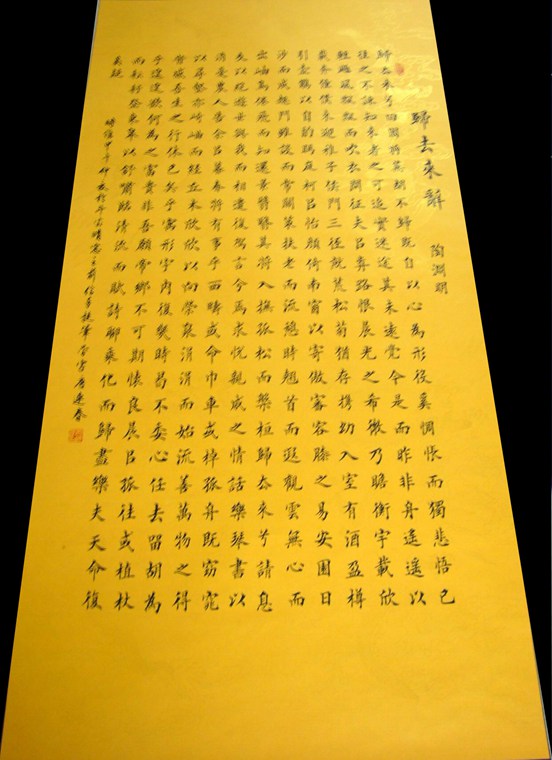 歸去來辭 陶淵明
歸去來兮田園將蕪胡不歸既自以心為形役奚惆悵而獨悲悟已
往之不諫知來者之可追實迷途其未遠覺今是而昨非舟遙遙以
輕颺風飄飄而吹衣問征夫㠯前路恨晨光之希微乃瞻衡宇載欣
載奔僮僕來迎稚子候門三徑就荒松菊猶存携幼入室有酒盈樽
引壺觴以自酌眄庭柯㠯怡顏倚南窗以寄傲審容膝之易安園日
涉而成趣門雖設而常關策扶老而流憩時翹首而遐觀雲無心而
出岫鳥倦飛而知還景翳翳其將入撫孤松而槃桓歸去來兮請息
交以絕遊世與我而相遺復駕言兮焉求悅親戚之情話樂琴書以
消憂農人告余㠯暮春將有事乎西疇或命巾車或棹孤舟既窈窕
以尋壑亦崎嶇而經丘木欣欣以向榮泉涓涓而始流善萬物之得
時感吾生之行休已矣乎寓形宇內復幾時曷不委心任去留胡為
乎遑遑欲何為之富貴非吾願帝鄉不可期懷良辰㠯孤往或植杖
而耘籽登東皋以舒嘯臨清流而賦詩聊乘化而歸盡樂夫天命復
奚疑
時維甲午仲